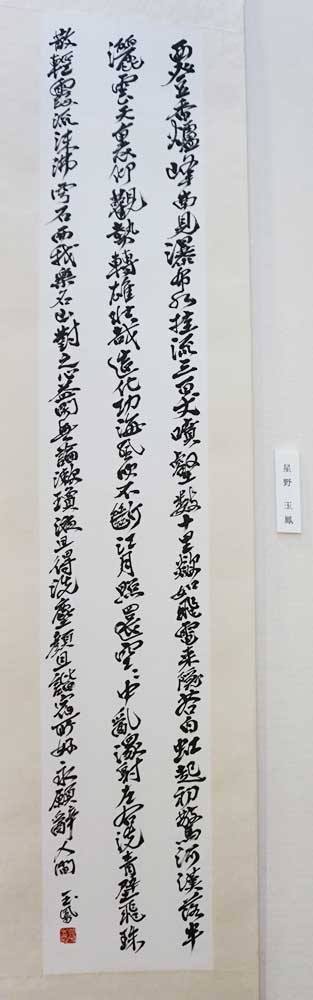 西登香爐峰南見瀑布水挂流三百丈噴壑數十里歘如飛電来隱若白虹起初驚河漢落半
灑雲天裏仰觀勢轉雄壮哉造化功海風吹不斷江月照還空々中亂潨射左右洗青壁飛珠
散輕霞流沫沸穹石而我樂名山對之心益閑無論漱瓊液且得洗塵顔且諧宿所好永願辭人間 玉鳳
星野 玉鳳